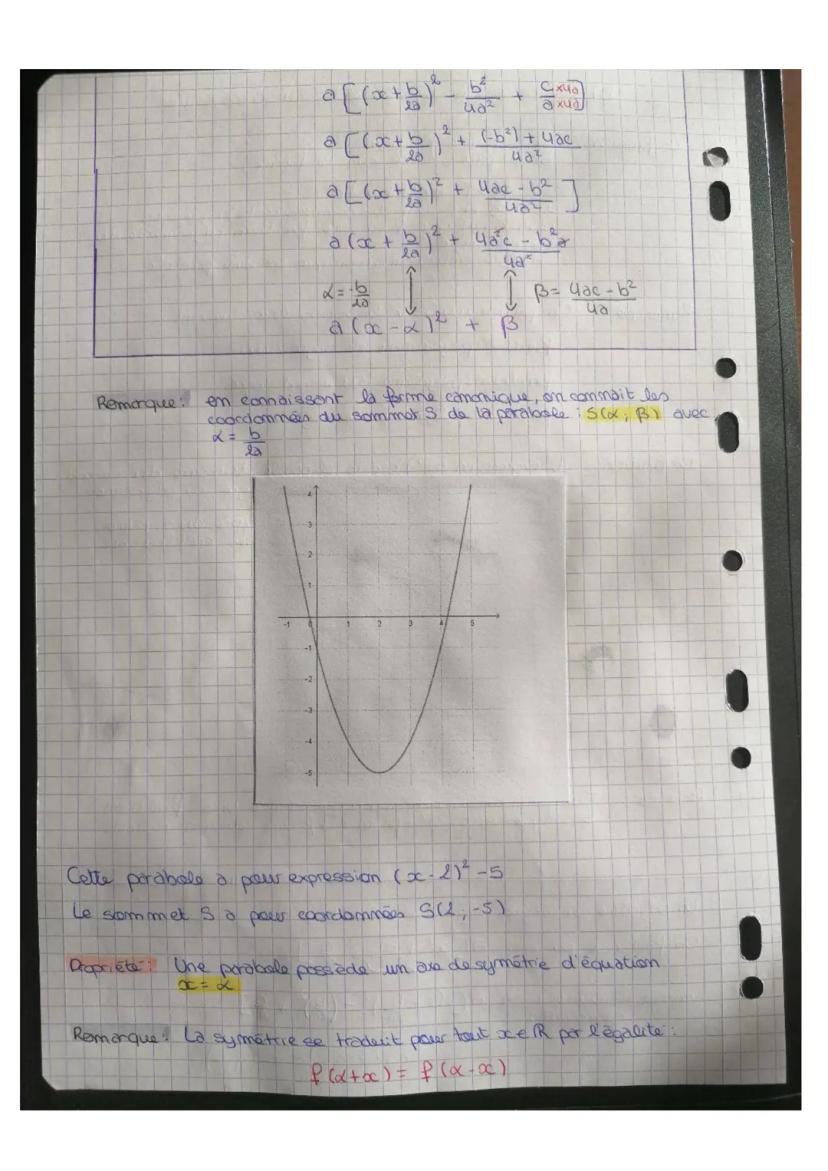 a[(x+b/2a)² - b²/4a² + c×4a/a×4a]
a[(x+b/2a)² + (-b²)+4ac/4a²
a[(x+b/2a)² + 4ac-b²/4a²]
a(x+b/2a)² + 4a²c-b²a/4a²
α=-b/2a ↕ ↕ β=4ac-b²/4a
a(x-α)² + β
Remarque: en connaissent la forme canonique, on connait les
coordonnées du sommet S de la parabole : S(α; β) avec
α = b/2a
4
3
2
1
-1 0 1 2 3 4 5
-1
-2
-3
-4
-5
Cette parabole a pour expression (x-2)²-5
Le sommet S a pour coordonnées S(2;-5)
Propriété: Une parabole possède un axe de symétrie d'équation
x=α
Remarque: La symétrie se traduit pour tout x∈ℝ par l'égalité:
f(α+x)= f(α-x)